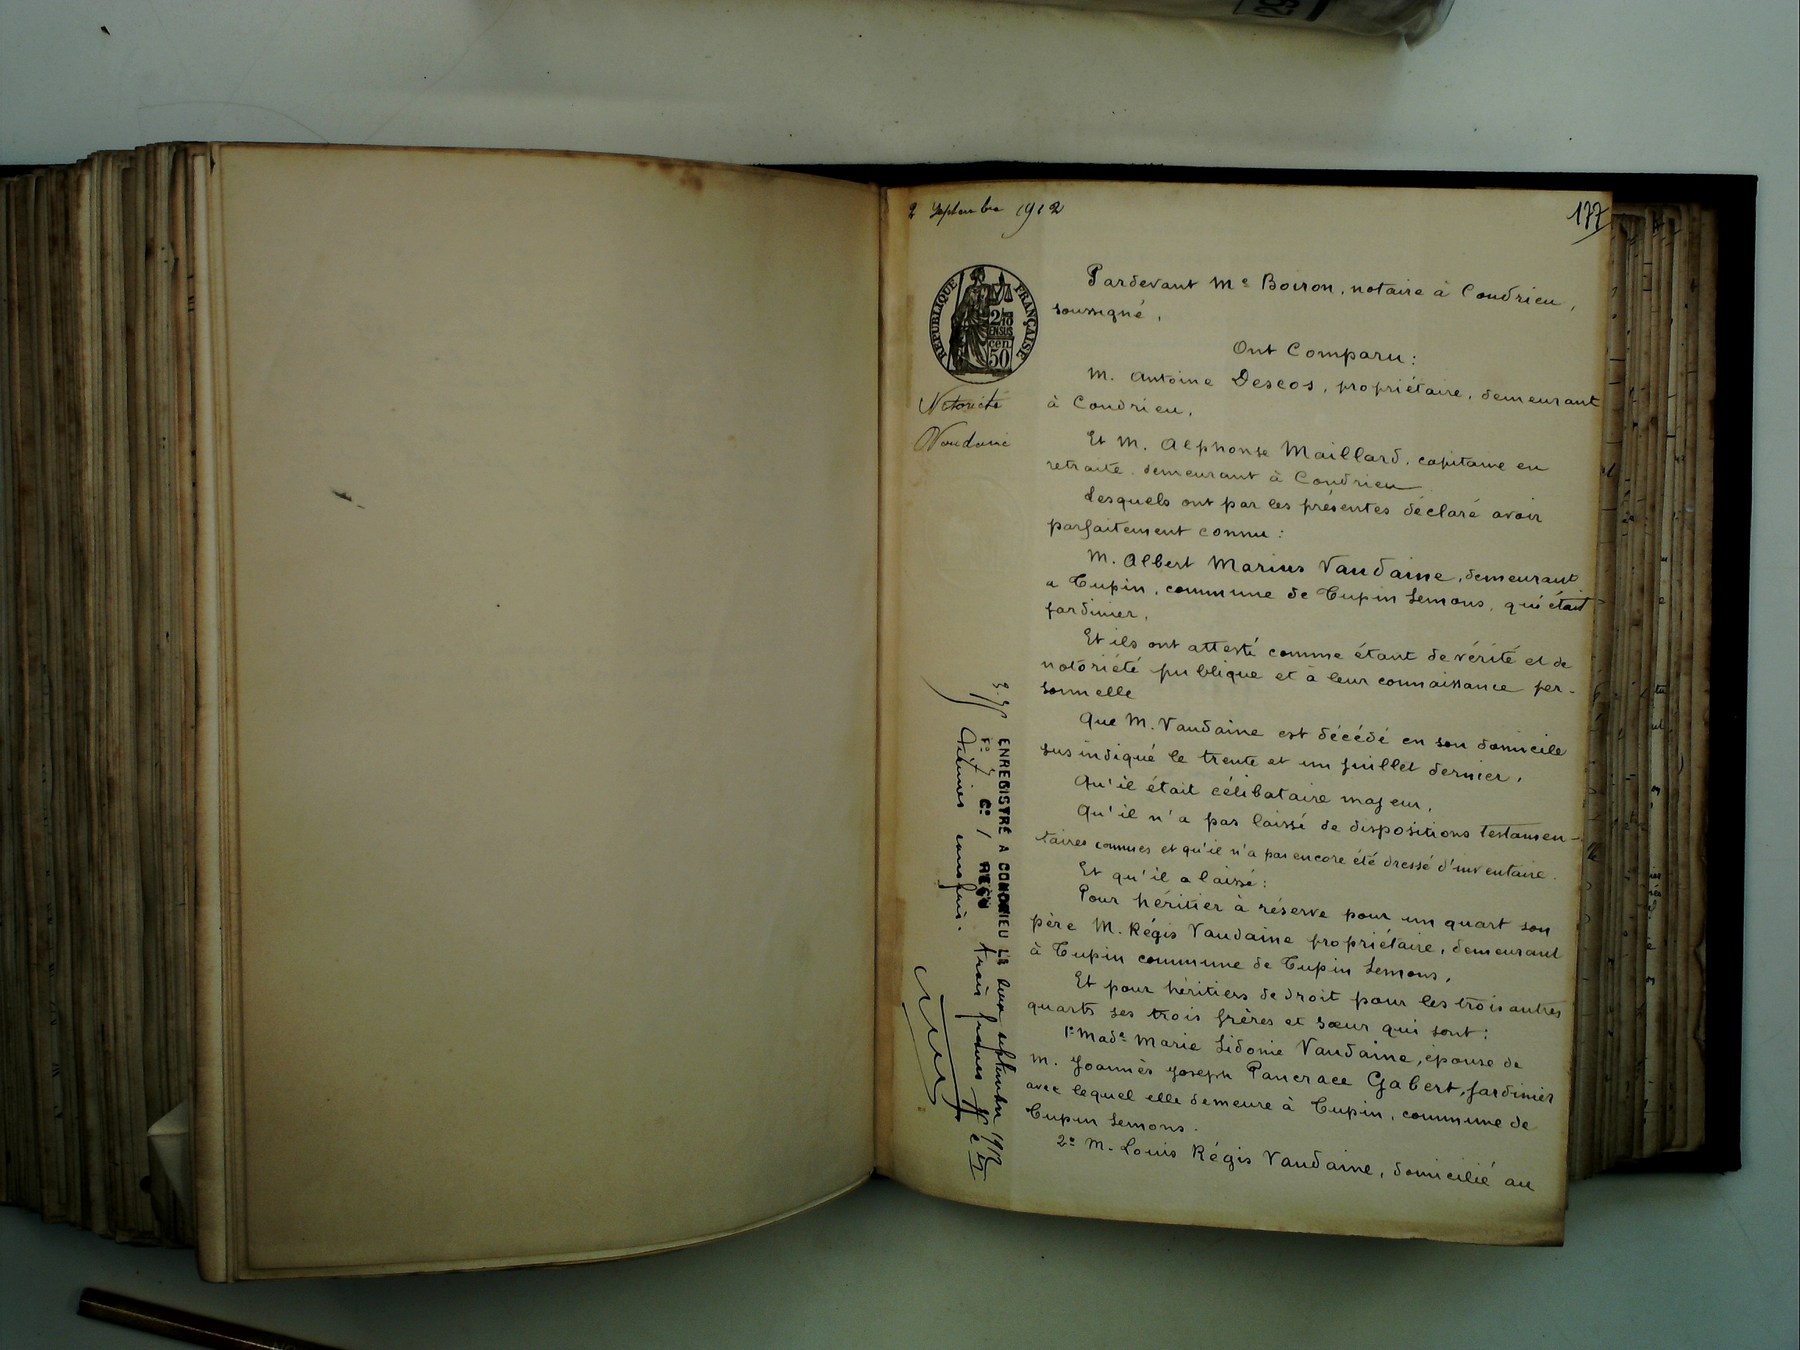 2 Septembre 1912
177
RÉPUBLIQUE FRANÇAISE
2/10
EN SUS
cen
50
Notoriété
Vaudaine
Pardevant Me Boiron, notaire à Condrieu,
soussigné,
Ont Comparu:
M. Antoine Descos, propriétaire, demeurant
à Condrieu,
Et M. Alphonse Maillard, capitaine en
retraite, demeurant à Condrieu
Lesquels ont par les présentes déclaré avoir
parfaitement connu:
M. Albert Marius Vaudaine, demeurant
a Tupin, commune de Tupin Semons, qui était
jardinier,
Et ils ont attesté comme étant de vérité et de
notoriété publique et à leur connaissance per-
sonnelle
Que M. Vaudaine est décédé en son domicile
sus indiqué le trente et un juillet dernier,
Qu'il était célibataire majeur,
Qu'il n'a pas laissé de dispositions testamen-
taires connues et qu'il n'a pas encore été dressé d'inventaire.
Et qu'il a laissé:
Pour héritier à réserve pour un quart son
père M. Régis Vaudaine propriétaire, demeurant
à Tupin commune de Tupin Semons,
Et pour héritiers de droit pour les trois autres
quarts ses trois frères et sœur qui sont:
1º Made Marie Sidonie Vaudaine, épouse de
M. Joannès Joseph Pancrace Gabert, jardinier
avec lequel elle demeure à Tupin, commune de
Tupin Semons.
2º M. Louis Régis Vaudaine, domicilié au
ENREGISTRÉ A CONDRIEU LE deux septembre 1912
Fº 7 Cº 1 REÇU trois francs
Décimes compris.